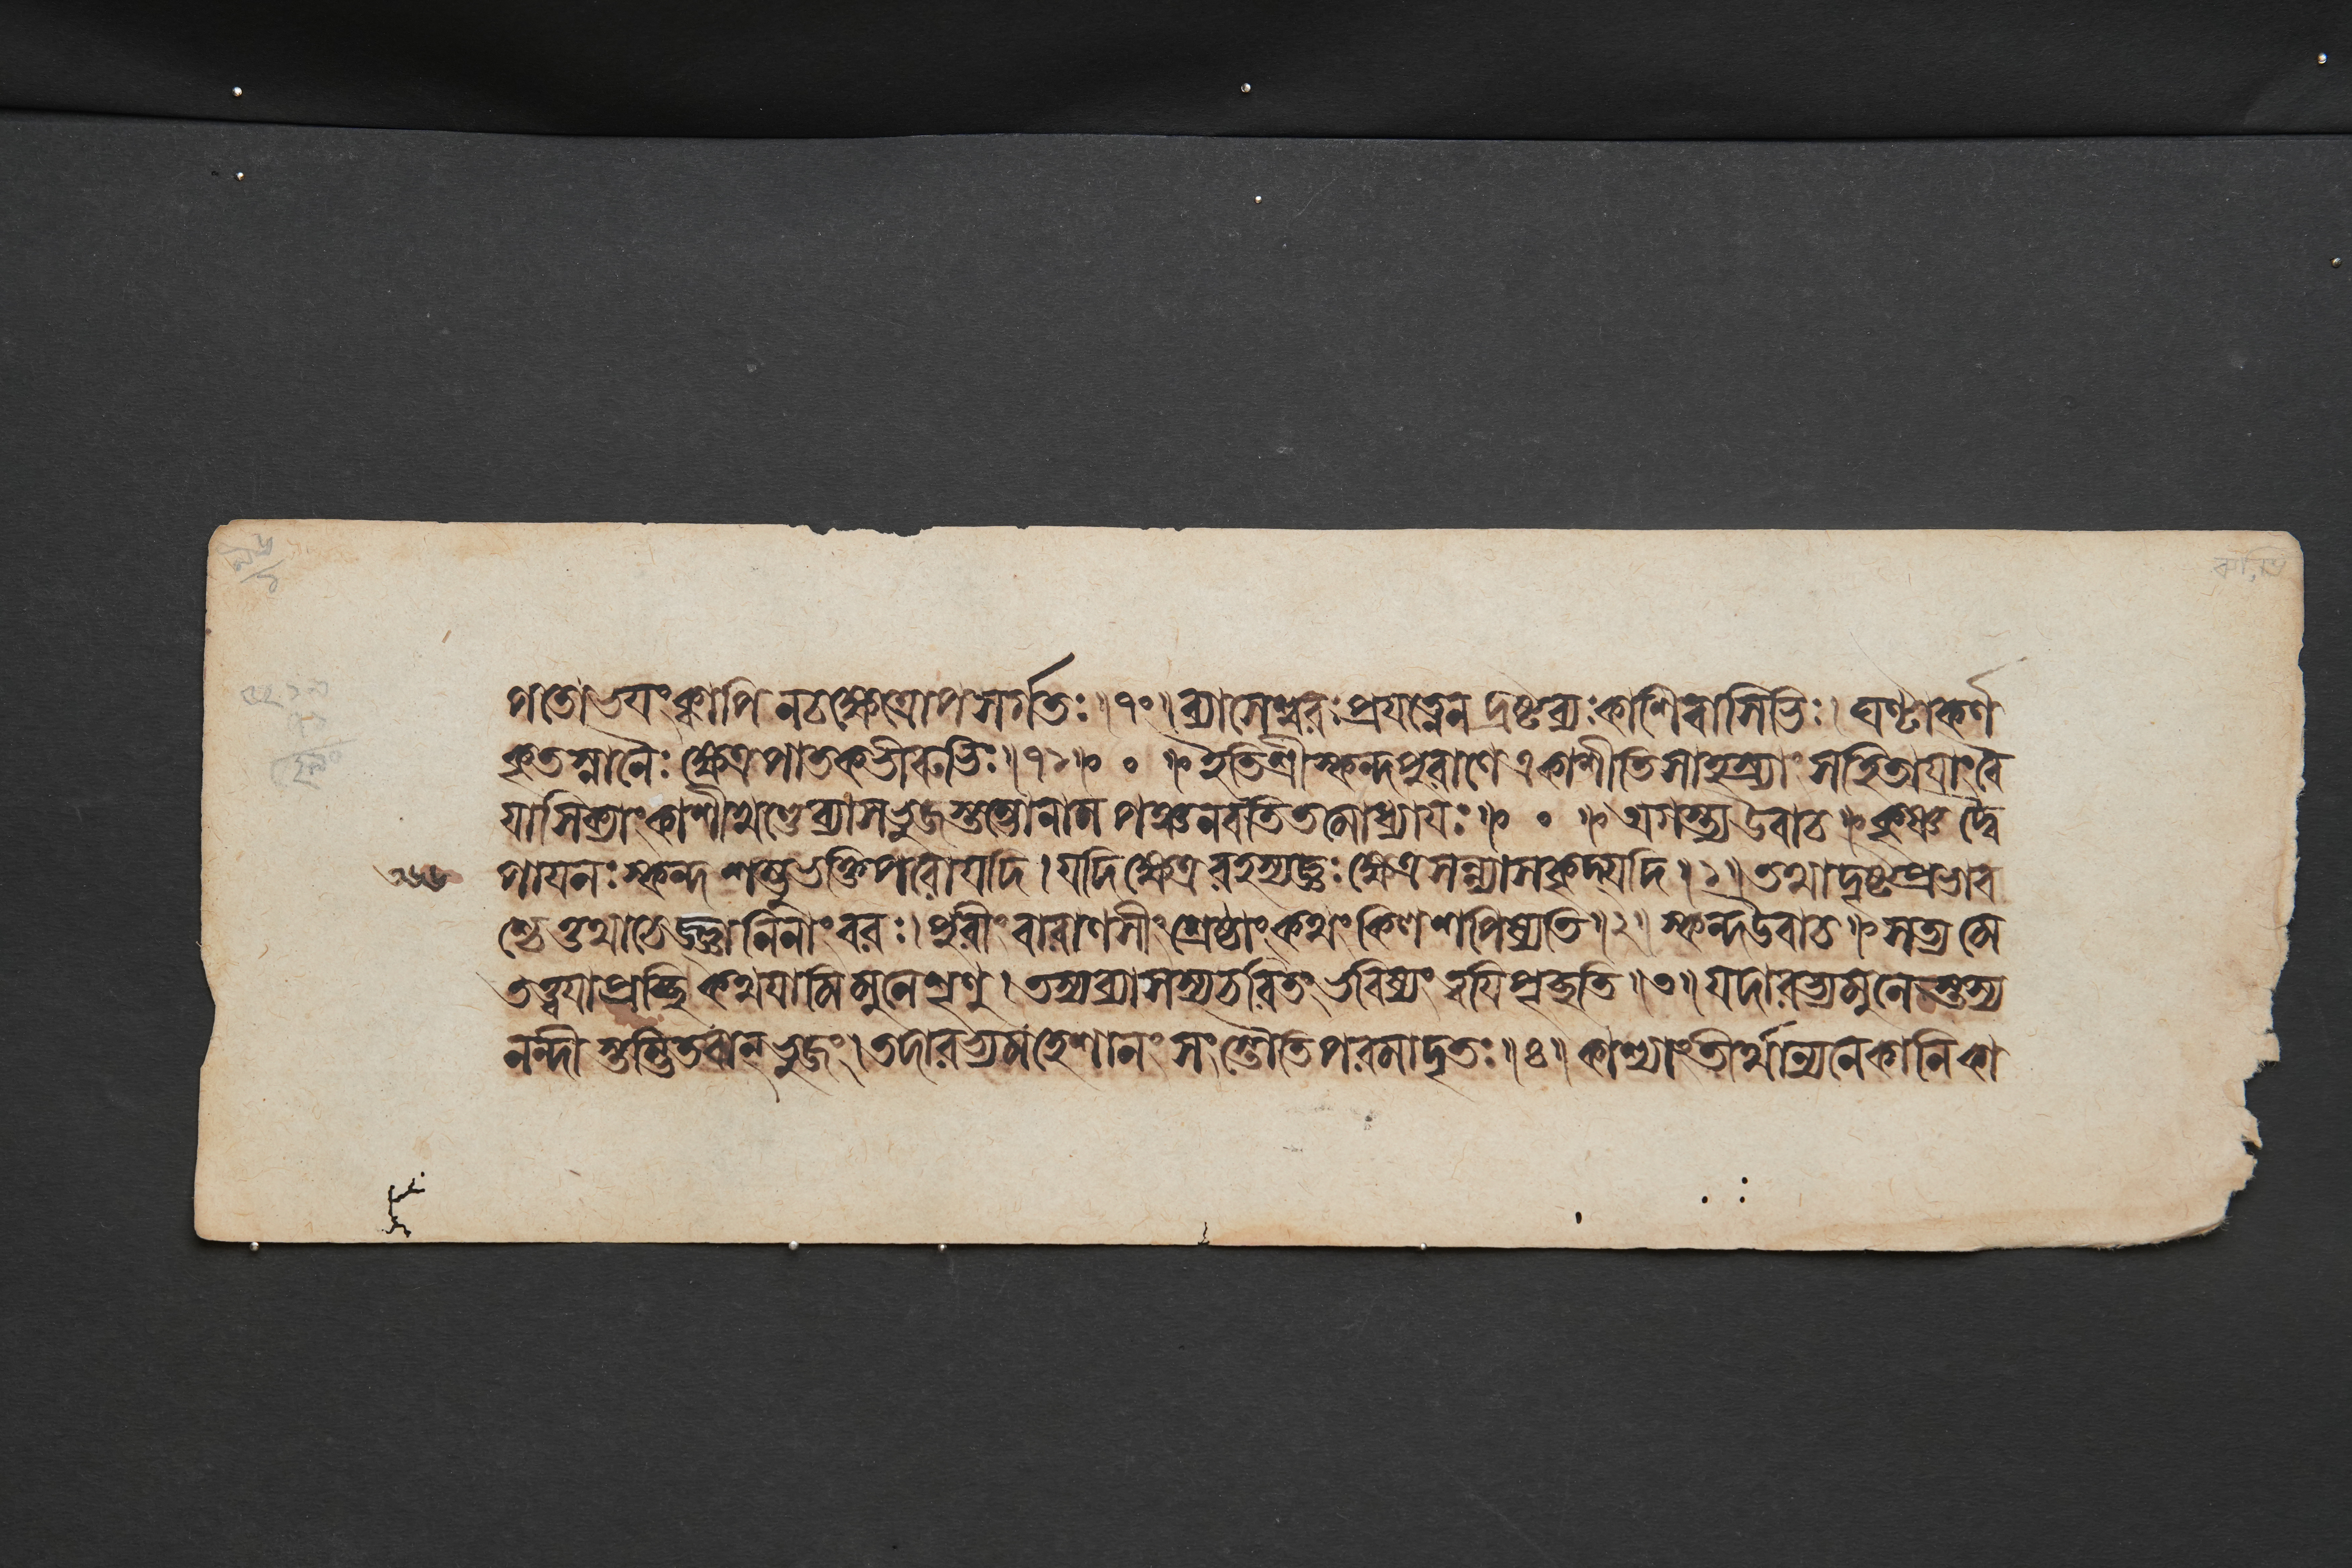 পতো ভয়ং ক্বাপি নচ ক্ষেত্রোপসর্গতঃ॥৭০॥ব্যাসেশ্বরঃ প্রযত্নেন দ্রষ্টব্যঃ কাশিবাসিভিঃ। ঘণ্টাকর্ণ
কৃতস্নানৈঃ ক্ষেত্রপাতকভীরুভিঃ॥৭১॥ ॰ ॥ইতিশ্রীস্কন্দপুরাণে একাশীতিসাহস্র্যাং সংহিতায়াং বৈ
য়াসিক্যাং কাশীখণ্ডে ব্যাসভুজস্তম্ভোনাম পঞ্চনবতিতমোধ্যায়ঃ॥ ॰ ॥অগস্ত্য উবাচ॥কৃষ্ণদ্বৈ
পায়নঃ স্কন্দ শম্ভুভক্তিপরো যদি। যদি ক্ষেত্ররহস্যজ্ঞঃ ক্ষেত্রসন্ন্যাসকৃদ্যদি॥১॥তথা দৃষ্টপ্রভাব
শ্চেত্তথা চেজ্জ্ঞানিনাং বরঃ। পুরীং বারাণসীং শ্রেষ্ঠাং কথং কিণ শপিষ্যতি॥২॥ স্কন্দ উবাচ॥সত্যমে
তত্ত্বয়া প্রচ্ছি কথয়ামি মুনে শৃণু। তস্য ব্যাসস্য চরিতং ভবিষ্যং ত্বয়ি পৃচ্ছতি॥৩॥ যদারভ্য মুনে স্তস্য
নন্দী স্তম্ভিতবান্ ভুজং। তদারভ্য মহেশানং সংস্তৌতি পরমাদৃতঃ॥৪॥ কাশ্যাং তীর্থান্যনেকানি কা